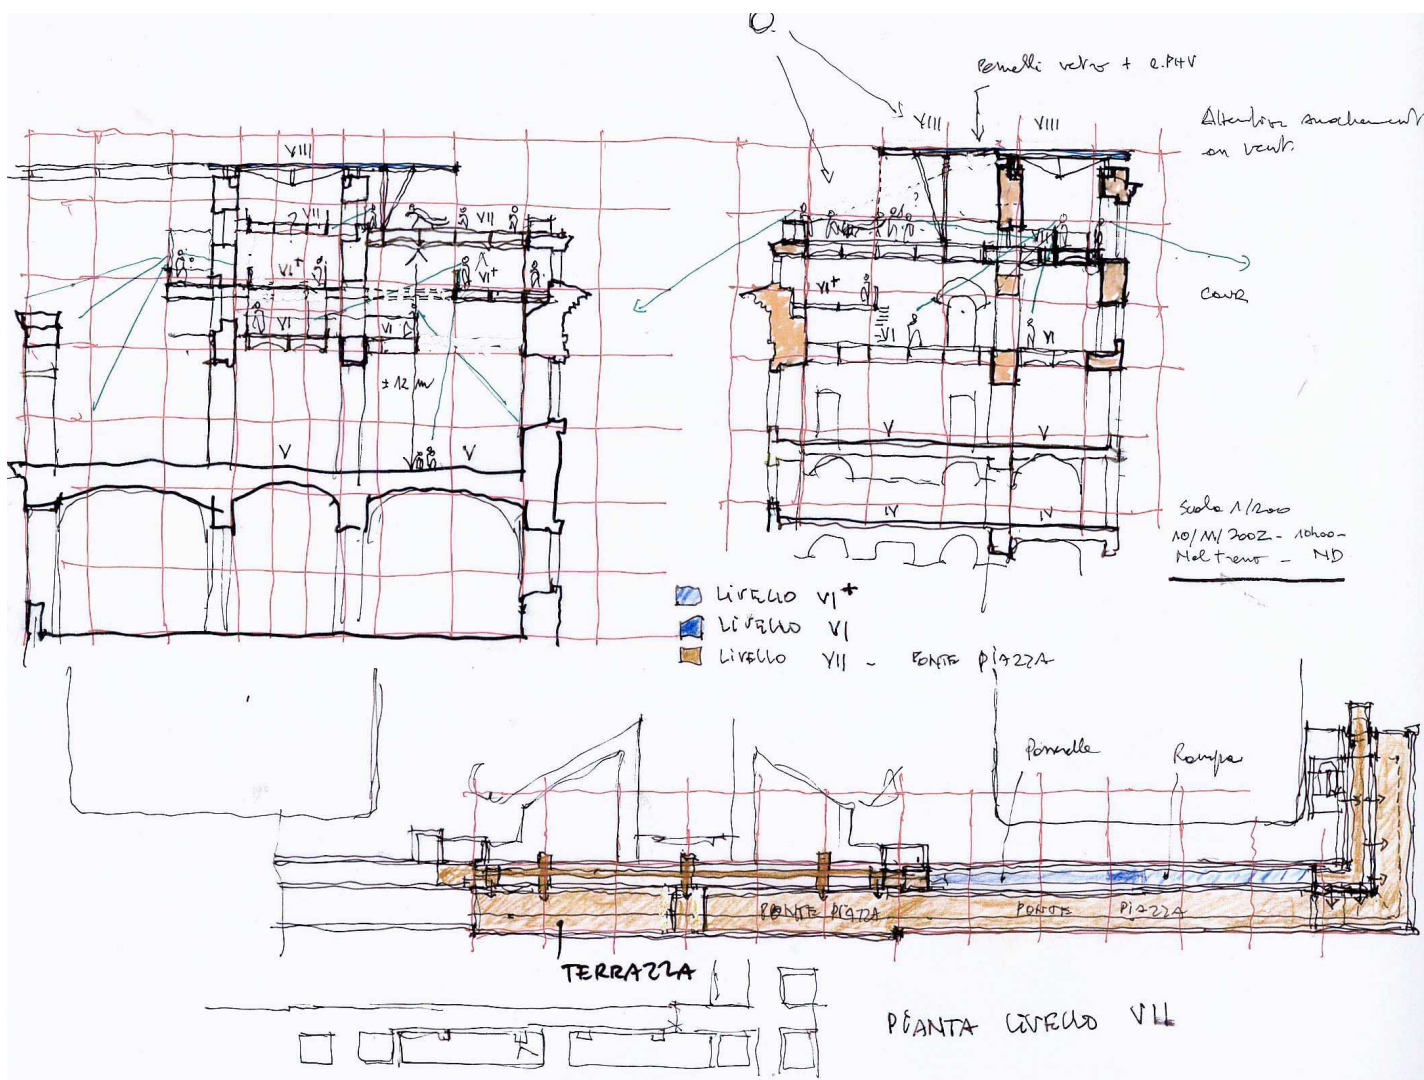 Pannelli vetro + e.PHV
VIII
VIII
VIII
on vent.
VII
VII
VII
VI+
VI+
COUR
VI+
VI
VI
VI
VI
± 12 m
V
V
V
V
IV
IV
Scala 1/200
10/11/2002 - 10h00 -
Nel treno - ND
LIVELLO VI+
LIVELLO VI
LIVELLO VII - PONTE PIAZZA
Passerelle
Rampa
PONTE PIAZZA
PONTE PIAZZA
TERRAZZA
PIANTA LIVELLO VII